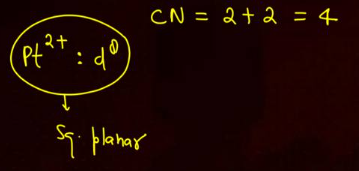 CN = 2 + 2 = 4
Pt²⁺ : d⁸
Sq. planar